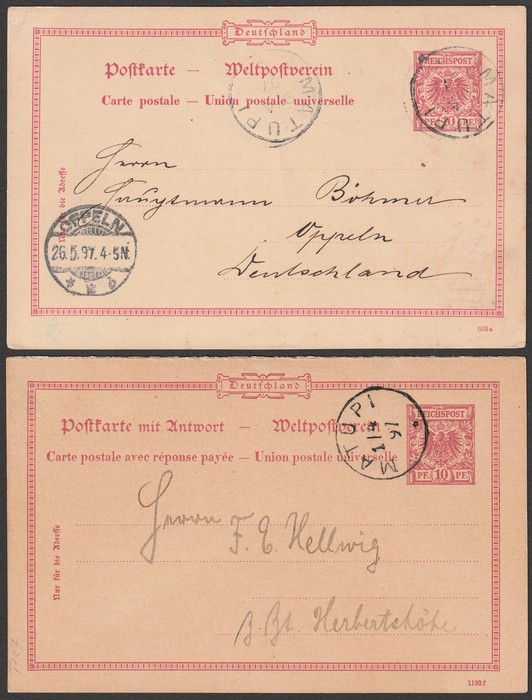 Deutschland
Postkarte — Weltpostverein
Carte postale — Union postale universelle
REICHSPOST
10 PF.
MATUPI
MATUPI
Herrn
Hauptmann Böhmer
Oppeln
Deutschland
Nur für die Adresse
OPPELN
26.5.97. 4-5N.
693a
Deutschland
Postkarte mit Antwort — Weltpostverein
Carte postale avec réponse payée — Union postale universelle
REICHSPOST
PF. 10 PF.
MATUPI
1/4
97
Herrn F. E. Hellwig
z. Zt. Herbertshöhe
Nur für die Adresse
1192f